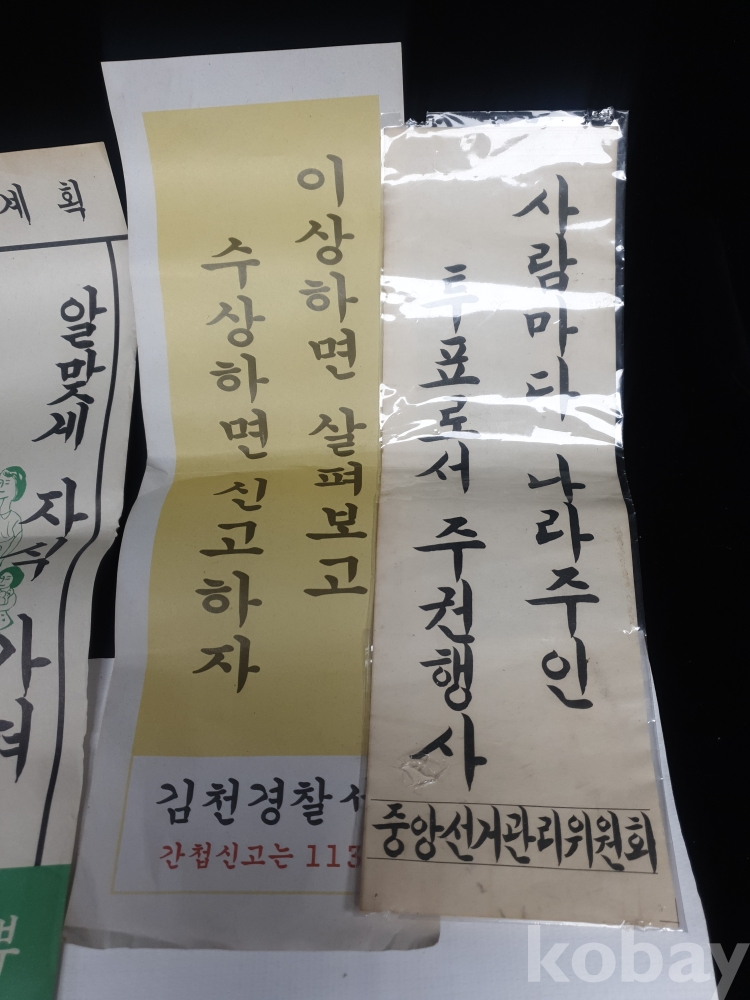 계획
알맞세 자식
이상하면 살펴보고
수상하면 신고하자
김천경찰
간첩신고는 113
사람마다 나라주인
투표로서 주권행사
중앙선거관리위원회
kobay